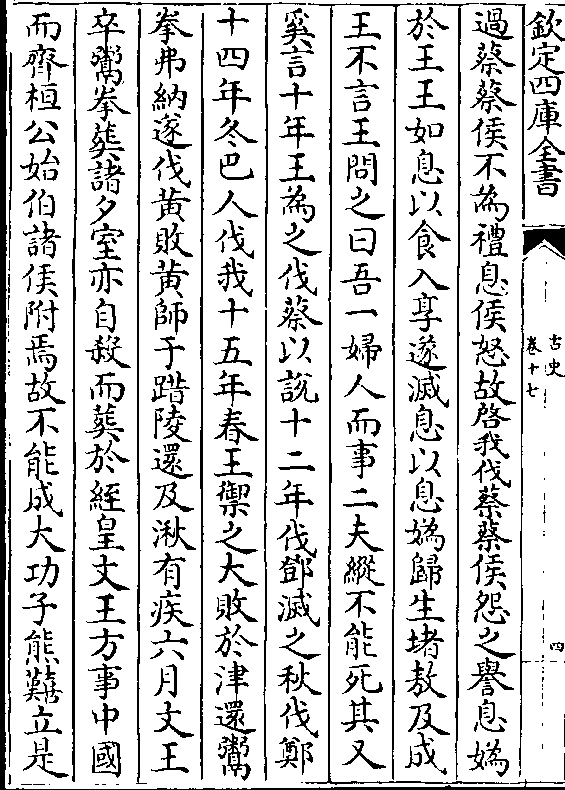 欽定四庫全書
古史
卷十七
四
過蔡蔡侯不為禮息侯怒故啓我伐蔡蔡侯怨之譽息媯
於王王如息以食入享遂滅息以息媯歸生堵敖及成
王不言王問之曰吾一婦人而事二夫縱不能死其又
奚言十年王為之伐蔡以說十二年伐鄧滅之秋伐鄭
十四年冬巴人伐我十五年春王禦之大敗於津還鬻
拳弗納遂伐黃敗黃師于踖陵還及湫有疾六月文王
卒鬻拳葬諸夕室亦自殺而葬於絰皇文王方事中國
而齊桓公始伯諸侯附焉故不能成大功子熊囏立是